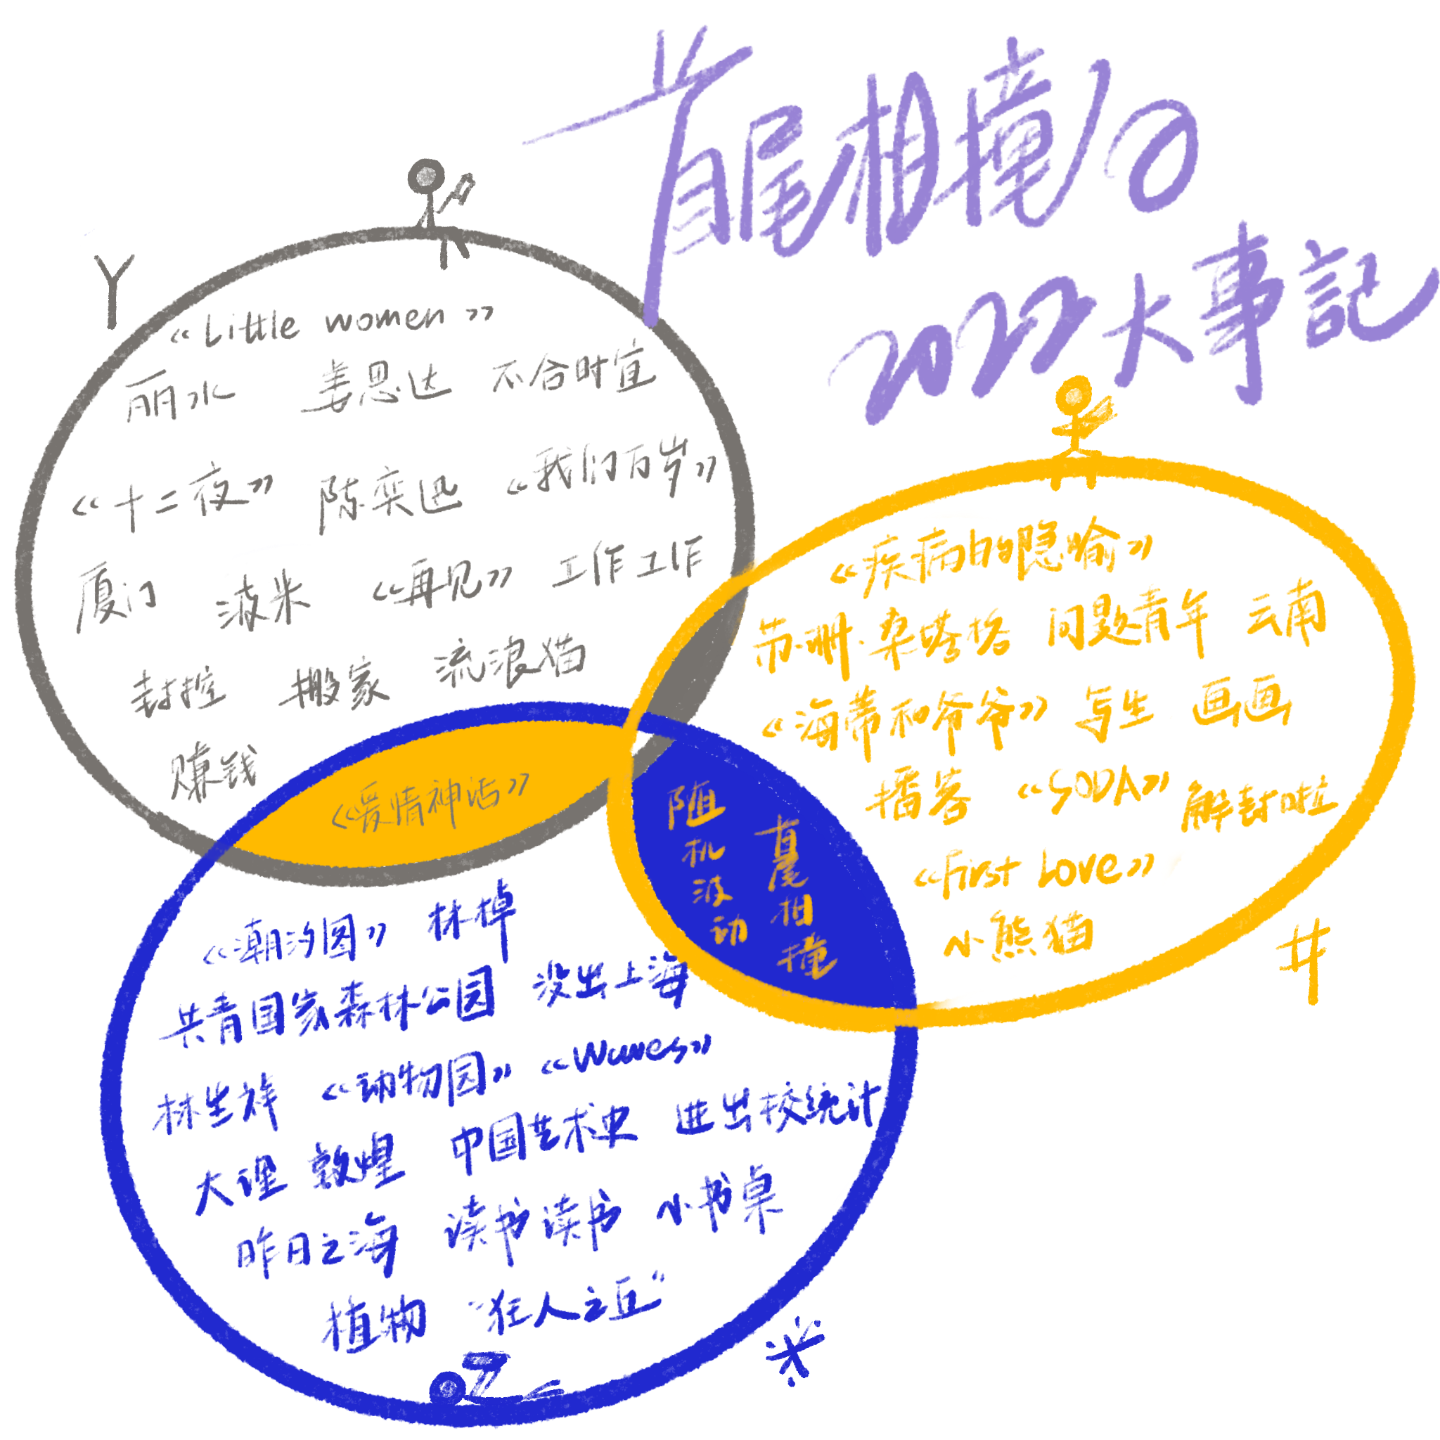 首尾相撞の
2022大事記
Y
《Little women》
丽水 姜思达 不合时宜
《十二夜》 陈奕迅 《我们万岁》
厦门 波米 《再见》 工作工作
封控 搬家 流浪猫
赚钱
《爱情神话》
《疾病的隐喻》
苏珊·桑塔格 问题青年 云南
《海蒂和爷爷》 写生 画画
播客 《SODA》 解封啦
《First Love》
小熊猫
井
随机波动
首尾相撞
《潮汐图》 林棹
共青国家森林公园 没出上海
林生祥 《动物园》 《Waves》
大理 敦煌 中国艺术史 进出校统计
昨日之海 读书读书 小书桌
植物 “狂人之丘”
米